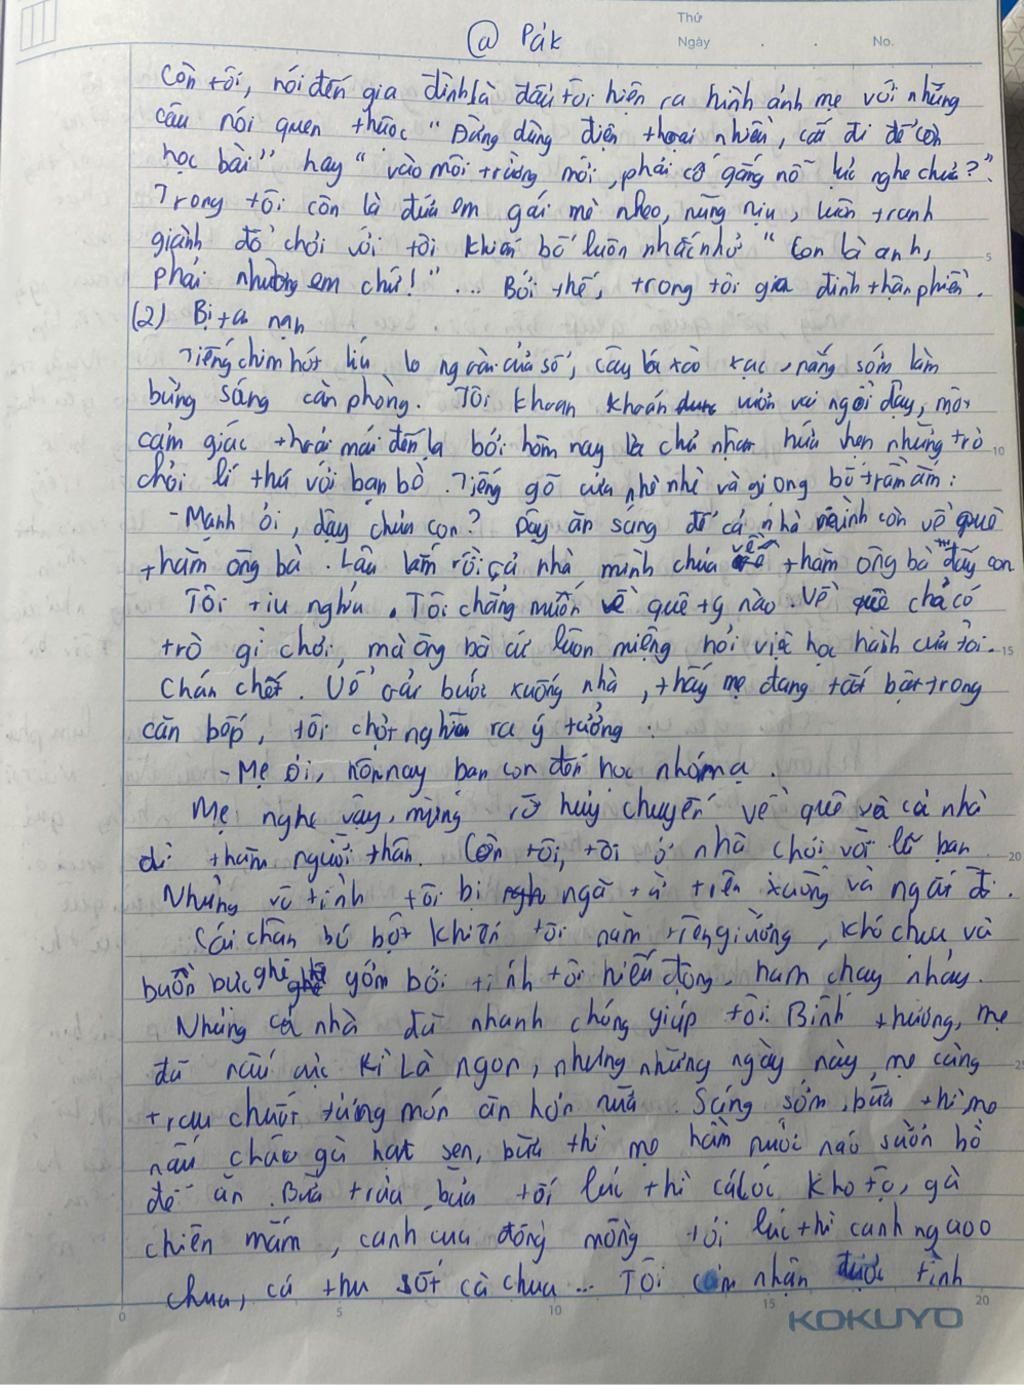 Thứ
@ Pák
Ngày . . No.
Còn tôi, nói đến gia đình là đầu tôi hiện ra hình ảnh mẹ với những
câu nói quen thuộc "Đừng dùng điện thoại nhiều, cất đi để còn
học bài" hay "vào môi trường mới, phải cố gắng nỗ lực nghe chưa?".
Trong tôi còn là đứa em gái mè nheo, nũng nịu, luôn tranh
giành đồ chơi với tôi khiến bố luôn nhắc nhở "Con là anh, 5
phải nhường em chứ!"... Bởi thế, trong tôi gia đình thật phiền.
(2) Bị tai nạn
Tiếng chim hót líu lo ngoài cửa sổ, cây lá xào xạc, nắng sớm làm
bừng sáng căn phòng. Tôi khoan khoái vươn vai ngồi dậy, một
cảm giác thoải mái đến lạ bởi hôm nay là chủ nhật hứa hẹn những trò 10
chơi lí thú với bạn bè. Tiếng gõ cửa nhè nhẹ và giọng bố trầm ấm:
- Mạnh ơi, dậy chưa con? Dậy ăn sáng để cả nhà mình còn về quê
thăm ông bà. Lâu lắm rồi cả nhà mình chưa về thăm ông bà đấy con
Tôi tiu nghỉu. Tôi chẳng muốn về quê tý nào. Về quê chả có
trò gì chơi, mà ông bà cứ luôn miệng hỏi việc học hành của tôi. 15
Chán chết. Uể oải bước xuống nhà, thấy mẹ đang tất bật trong
căn bếp, tôi chợt nghĩ ra ý tưởng:
- Mẹ ơi, hôm nay bạn con đến học nhóm ạ.
Mẹ nghe vậy, mừng rỡ hủy chuyến về quê và cả nhà
đi thăm người thân. Còn tôi, tôi ở nhà chơi với lũ bạn 20
Nhưng vô tình tôi bị ngã từ trên xuống và ngất đi.
Cái chân bó bột khiến tôi nằm trên giường, khó chịu và
buồn bực ghê gớm bởi tính tôi hiếu động, ham chạy nhảy.
Nhưng cả nhà đã nhanh chóng giúp tôi. Bình thường, mẹ
đã nấu cực kì là ngon, nhưng những ngày này, mẹ càng 25
trau chuốt từng món ăn hơn nữa. Sáng sớm, bữa thì mẹ
nấu cháo gà hạt sen, bữa thì mẹ hầm nước náo sườn bò
để ăn. Bữa trưa, bữa tối lúc thì cá lóc kho tộ, gà
chiên mắm, canh cua đồng mồng tơi lúc thì canh ngao
chua, cá thu sốt cà chua... Tôi cảm nhận được tình
0 5 10 15 20
KOKUYO